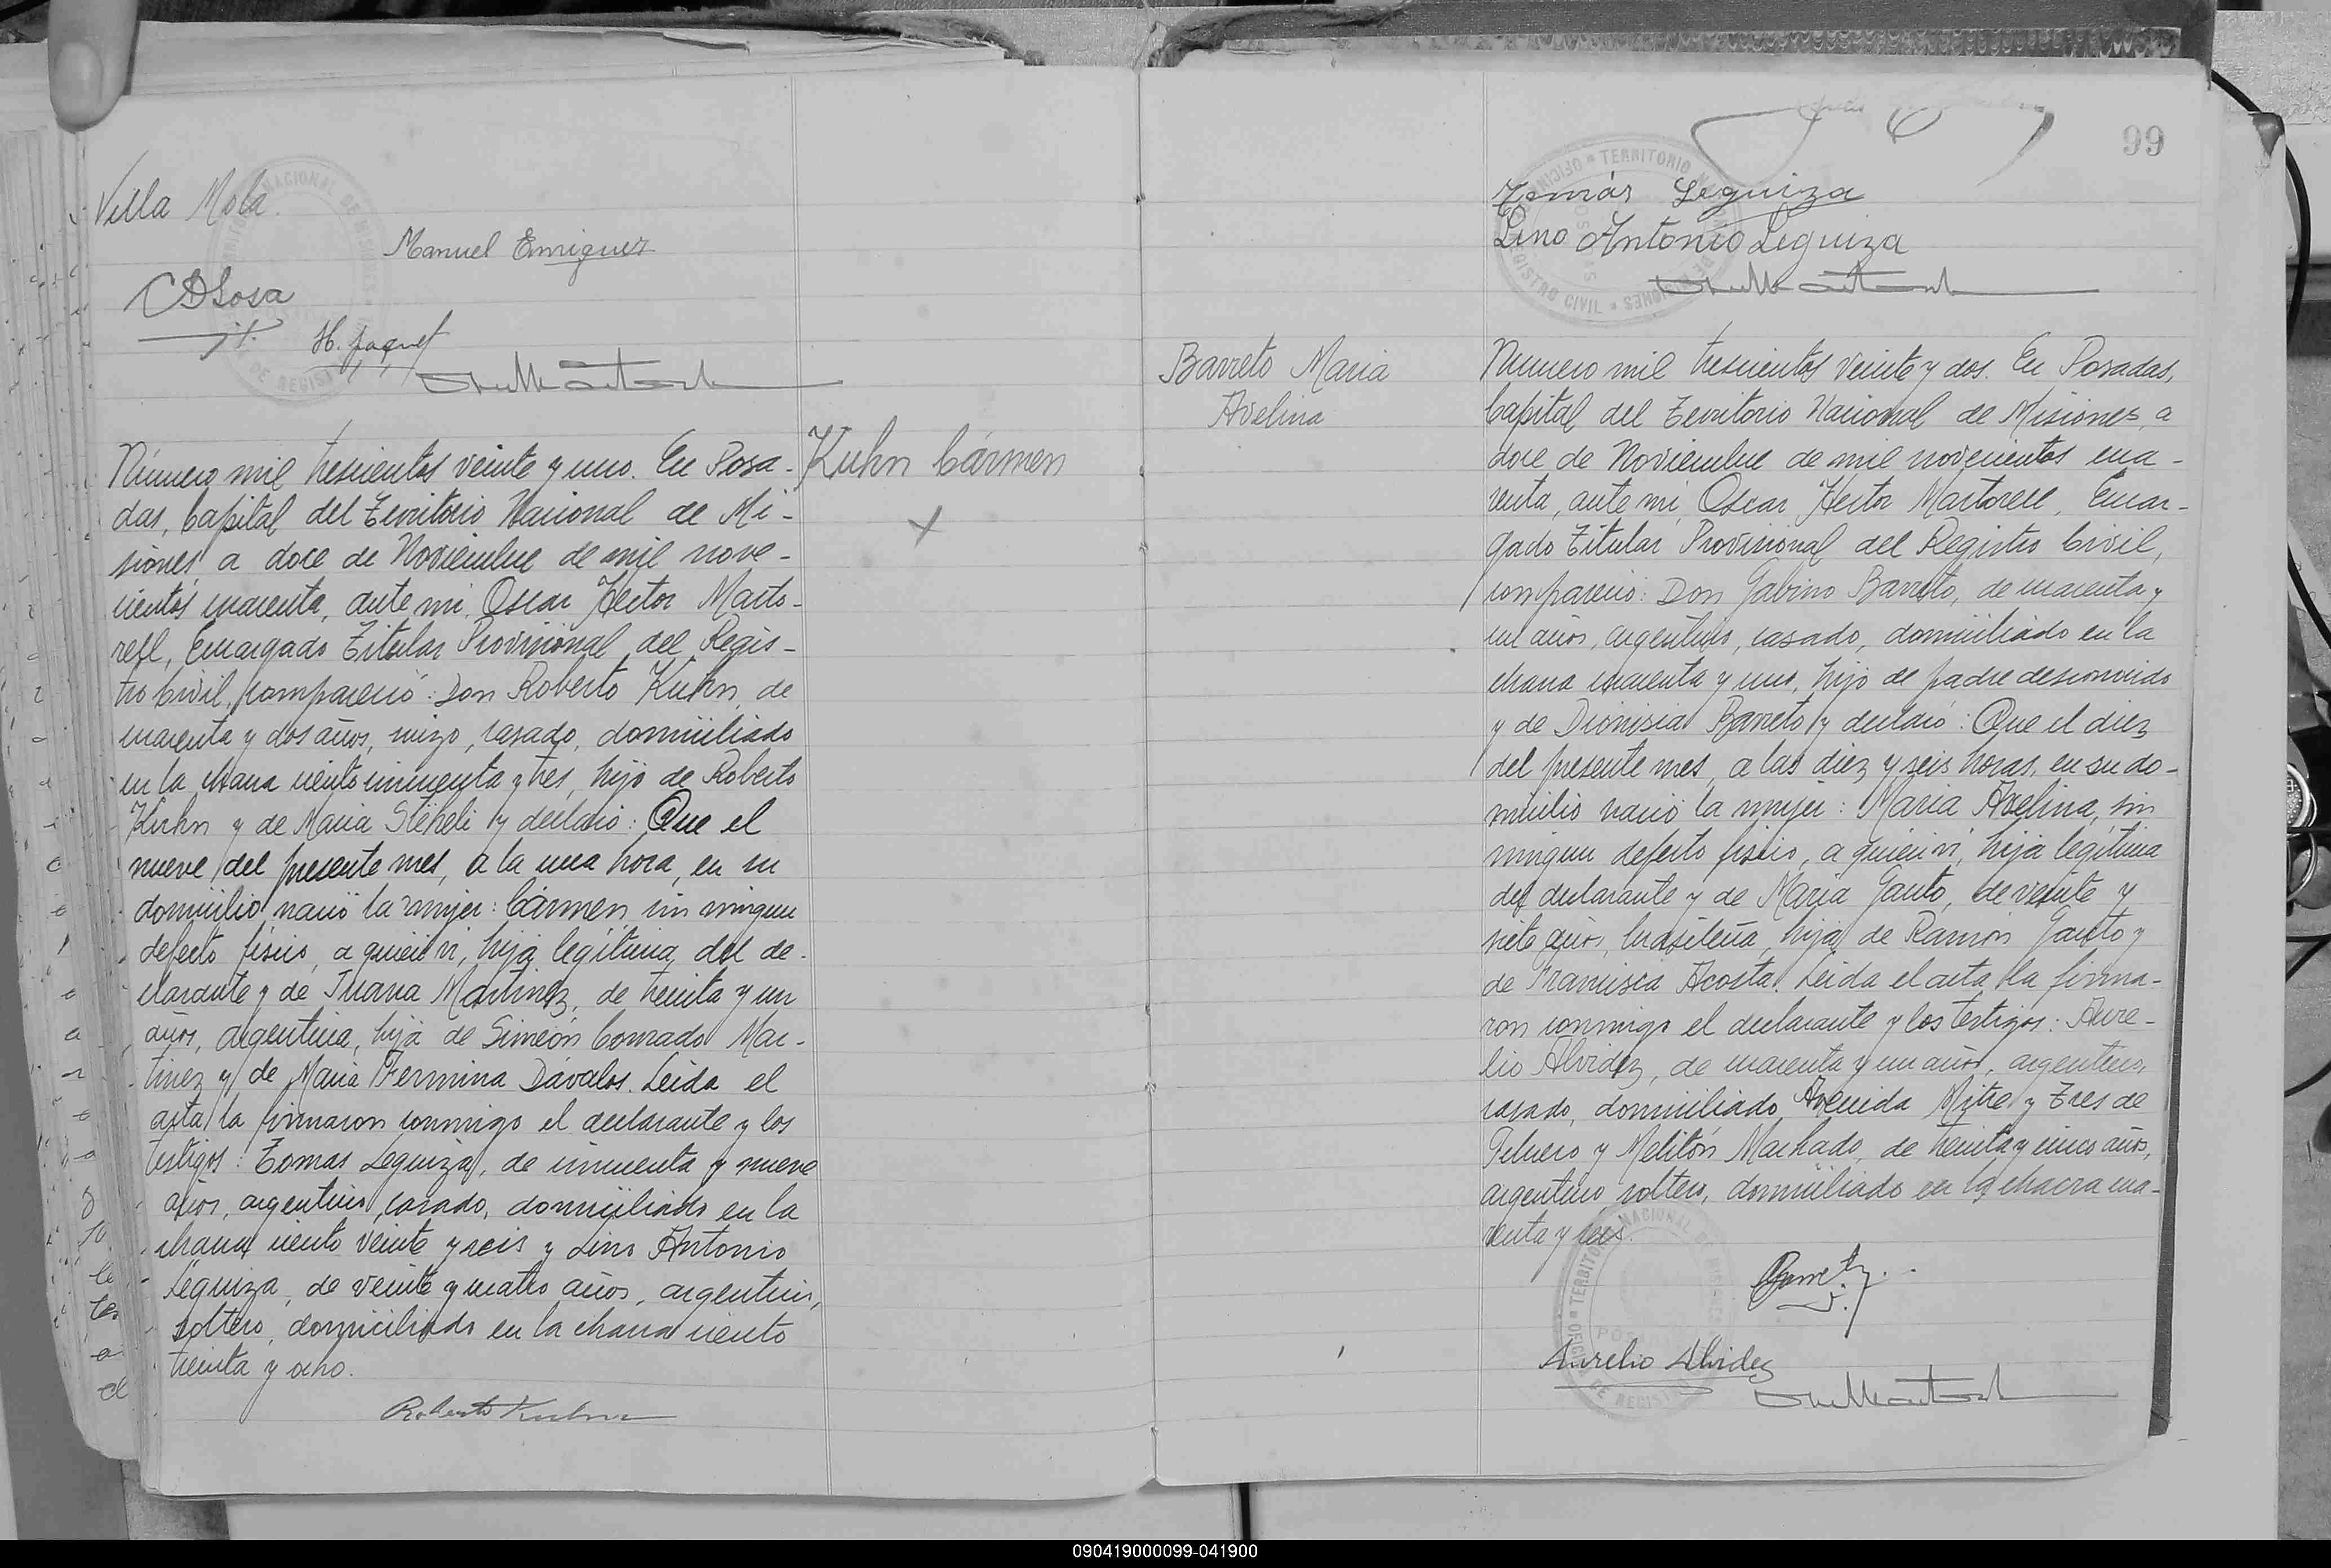 Villa Mola.
Manuel Enriquez
CDSosa
H. Jaquet
Número mil trescientos veinte y uno. En Posa-
das, Capital del Territorio Nacional de Mi-
siones, a doce de Noviembre de mil nove-
cientos cuarenta, ante mi, Oscar Hector Marto-
rell, Encargado Titular Provisional del Regis-
tro Civil, compareció: Don Roberto Kuhn, de
cuarenta y dos años, suizo, casado, domiciliado
en la chacra ciento cincuenta y tres, hijo de Roberto
Kuhn y de Maria Stëheli y declaró: Que el
nueve del presente mes, a la una hora, en su
domicilio nació la mujer: Cármen, sin ningun
defecto físico, a quien vi, hija legítima del de-
clarante y de Juana Martinez, de treinta y un
años, argentina, hija de Simeón Conrado Mar-
tinez y de Maria Fermina Dávalos. Leida el
acta la firmaron conmigo el declarante y los
testigos: Tomas Leguiza, de cincuenta y nueve
años, argentino, casado, domiciliado en la
chacra ciento veinte y seis y Lino Antonio
Leguiza, de veinte y cuatro años, argentino,
soltero, domiciliado en la chacra ciento
treinta y ocho.
Roberto Kuhn
Kuhn Cármen
99
Tomás Leguiza
Lino Antonio Leguiza
TERRITORIO
REGISTRO CIVIL
MISIONES
Barreto Maria
Avelina
Número mil trescientos veinte y dos. En Posadas,
Capital del Territorio Nacional de Misiones, a
doce de Noviembre de mil novecientos cua-
renta, ante mi, Oscar Hector Martorell, Encar-
gado Titular Provisional del Registro Civil,
compareció: Don Gabino Barreto, de cuarenta y
un años, argentino, casado, domiciliado en la
chacra cuarenta y uno, hijo de padre desconocido
y de Dionisia Barreto y declaró: Que el diez
del presente mes, a las diez y seis horas, en su do-
micilio nació la mujer: Maria Avelina, sin
ningun defecto físico, a quien vi, hija legítima
del declarante y de Maria Gauto, de veinte y
siete años, brasileña, hija de Ramón Gauto y
de Francisca Acosta. Leida el acta la firma-
ron conmigo el declarante y los testigos: Aure-
lio Alvidez, de cuarenta y un años, argentino,
casado, domiciliado Avenida Mitre y Tres de
Febrero y Melitón Machado, de treinta y cinco años,
argentino soltero, domiciliado en la chacra cua-
renta y tres.
Aurelio Alvidez
090419000099-041900